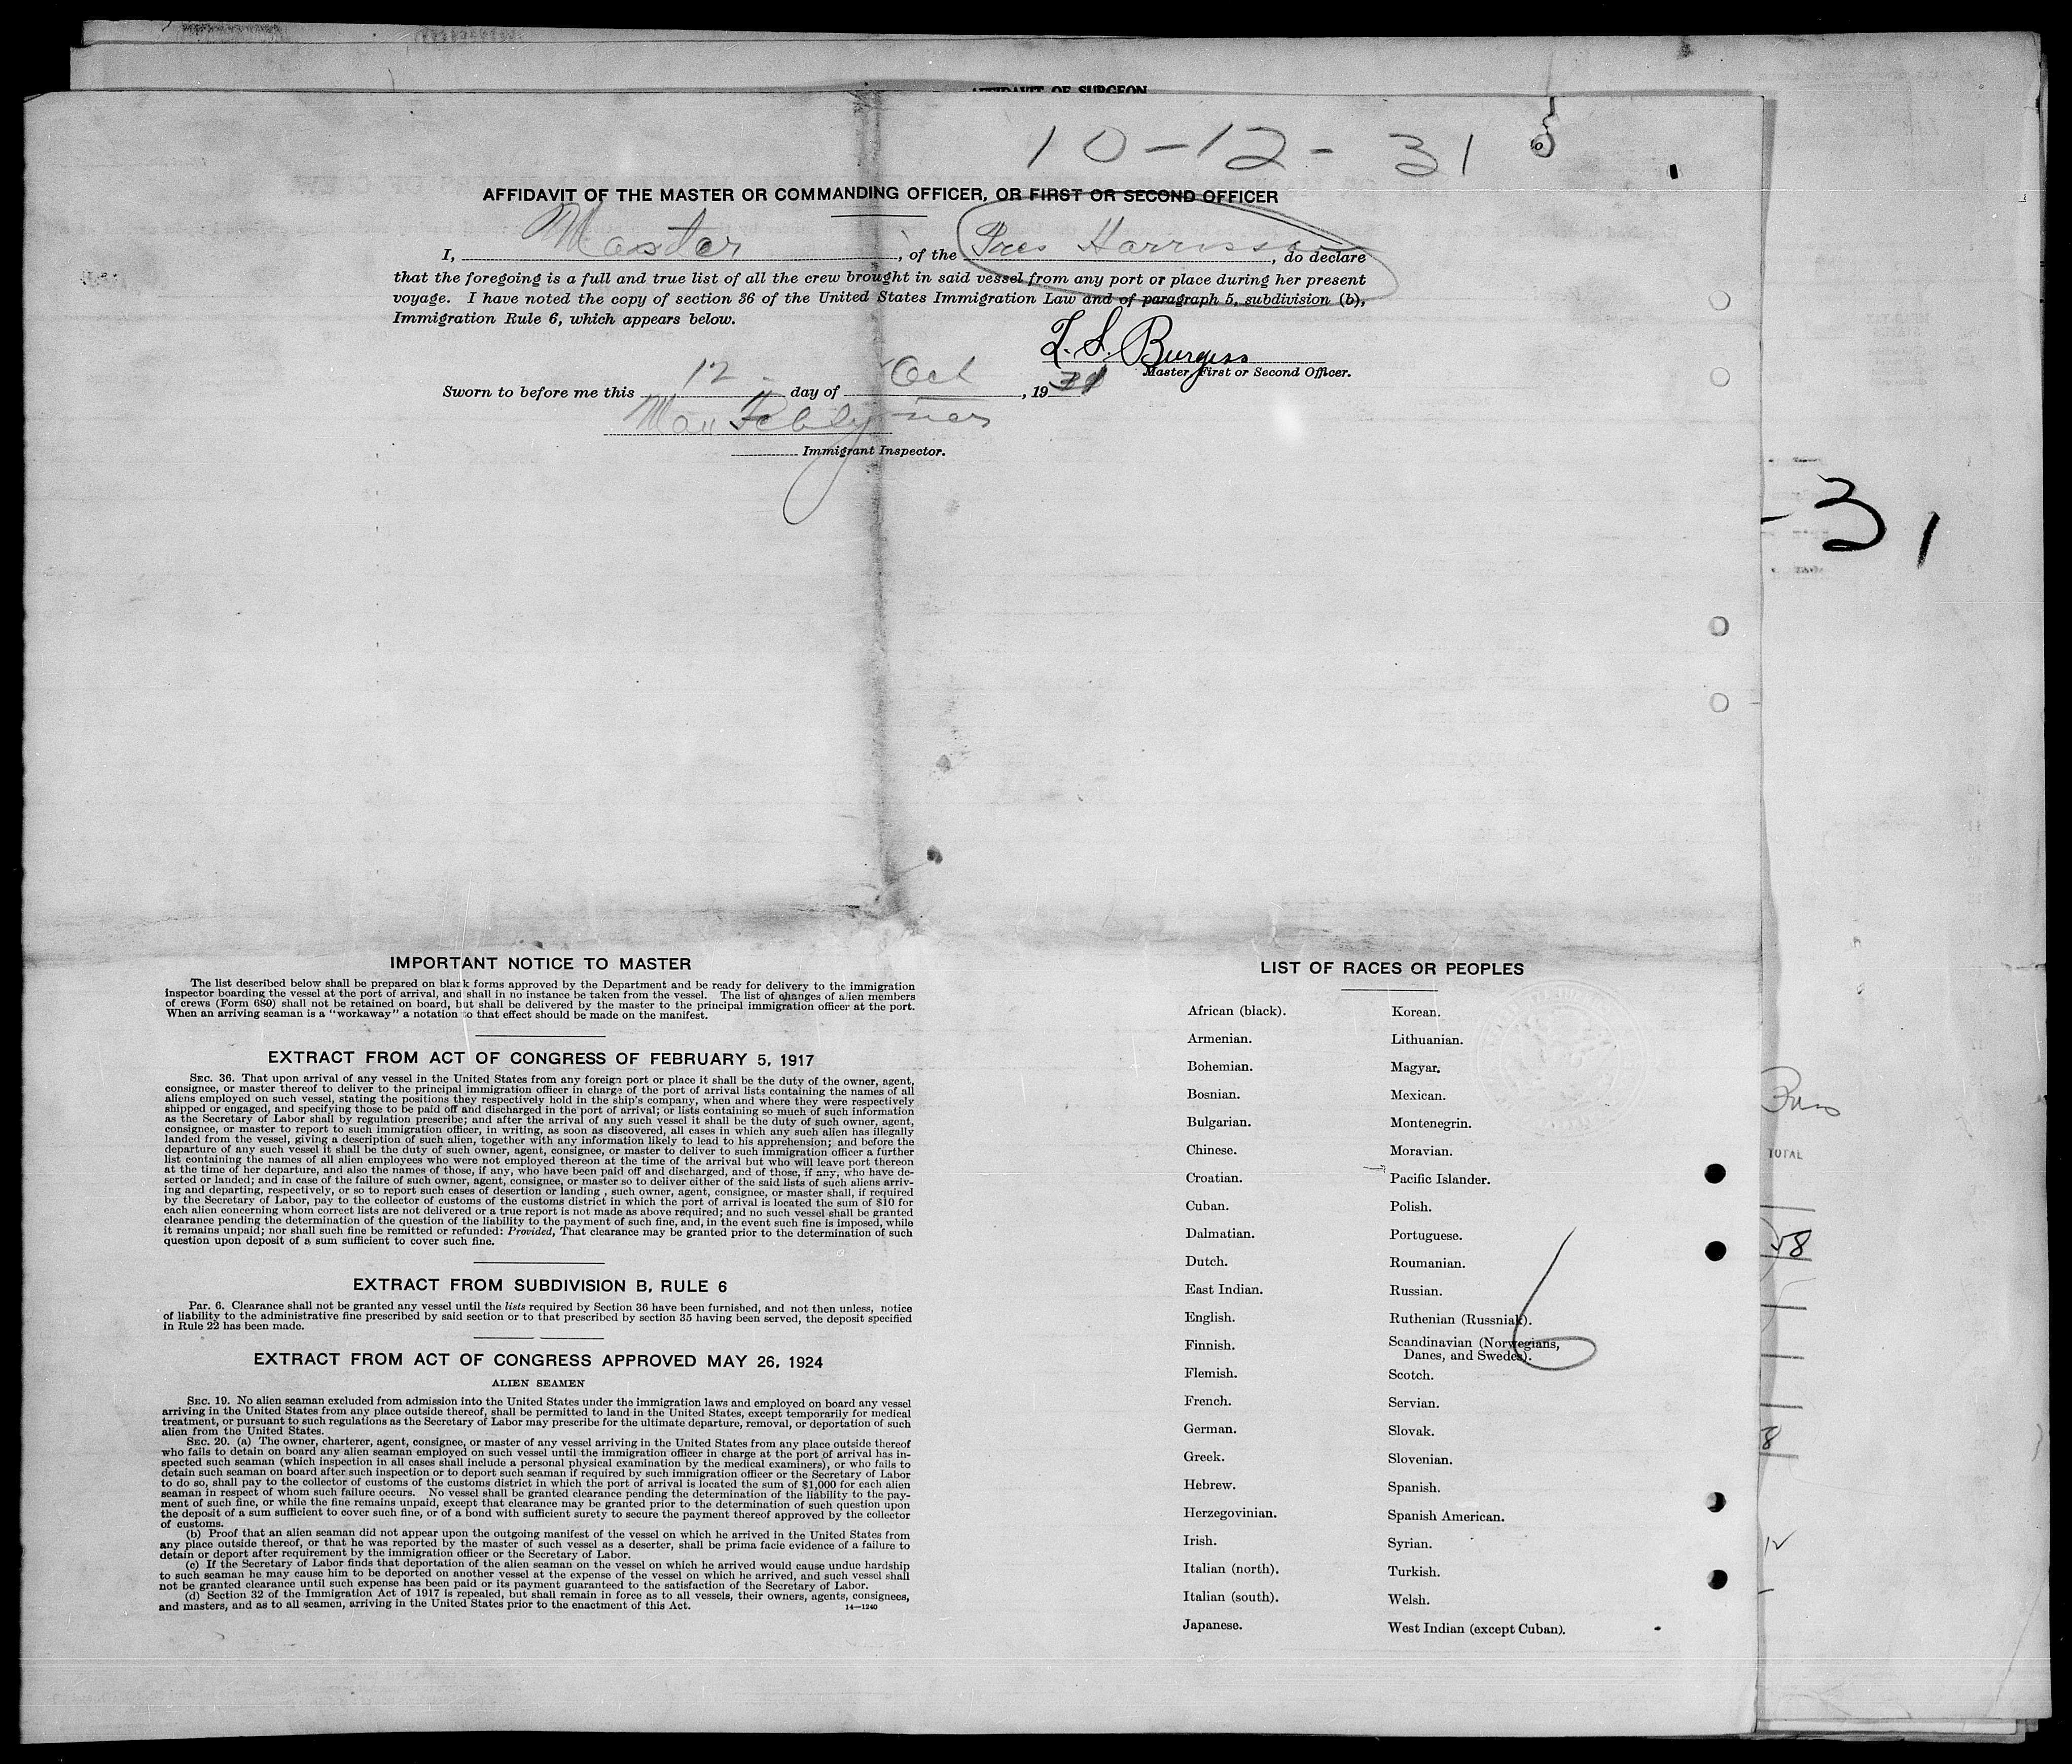 AFFIDAVIT OF SURGEON
10-12-31
AFFIDAVIT OF THE MASTER OR COMMANDING OFFICER, OR FIRST OR SECOND OFFICER
I, Master, of the Pres Harrison, do declare
that the foregoing is a full and true list of all the crew brought in said vessel from any port or place during her present
voyage. I have noted the copy of section 36 of the United States Immigration Law and of paragraph 5, subdivision (b),
Immigration Rule 6, which appears below.
Burgess
Master, First or Second Officer.
Sworn to before me this 12 day of Oct, 1931
Immigrant Inspector.
-31
IMPORTANT NOTICE TO MASTER
The list described below shall be prepared on blank forms approved by the Department and be ready for delivery to the immigration
inspector boarding the vessel at the port of arrival, and shall in no instance be taken from the vessel. The list of changes of alien members
of crews (Form 680) shall not be retained on board, but shall be delivered by the master to the principal immigration officer at the port.
When an arriving seaman is a "workaway" a notation to that effect should be made on the manifest.
EXTRACT FROM ACT OF CONGRESS OF FEBRUARY 5, 1917
SEC. 36. That upon arrival of any vessel in the United States from any foreign port or place it shall be the duty of the owner, agent,
consignee, or master thereof to deliver to the principal immigration officer in charge of the port of arrival lists containing the names of all
aliens employed on such vessel, stating the positions they respectively hold in the ship's company, when and where they were respectively
shipped or engaged, and specifying those to be paid off and discharged in the port of arrival; or lists containing so much of such information
as the Secretary of Labor shall by regulation prescribe; and after the arrival of any such vessel it shall be the duty of such owner, agent,
consignee, or master to report to such immigration officer, in writing, as soon as discovered, all cases in which any such alien has illegally
landed from the vessel, giving a description of such alien, together with any information likely to lead to his apprehension; and before the
departure of any such vessel it shall be the duty of such owner, agent, consignee, or master to deliver to such immigration officer a further
list containing the names of all alien employees who were not employed thereon at the time of the arrival but who will leave port thereon
at the time of her departure, and also the names of those, if any, who have been paid off and discharged, and of those, if any, who have de-
serted or landed; and in case of the failure of such owner, agent, consignee, or master so to deliver either of the said lists of such aliens arriv-
ing and departing, respectively, or so to report such cases of desertion or landing, such owner, agent, consignee, or master shall, if required
by the Secretary of Labor, pay to the collector of customs of the customs district in which the port of arrival is located the sum of $10 for
each alien concerning whom correct lists are not delivered or a true report is not made as above required; and no such vessel shall be granted
clearance pending the determination of the question of the liability to the payment of such fine, and, in the event such fine is imposed, while
it remains unpaid; nor shall such fine be remitted or refunded: Provided, That clearance may be granted prior to the determination of such
question upon deposit of a sum sufficient to cover such fine.
EXTRACT FROM SUBDIVISION B, RULE 6
Par. 6. Clearance shall not be granted any vessel until the lists required by Section 36 have been furnished, and not then unless, notice
of liability to the administrative fine prescribed by said section or to that prescribed by section 35 having been served, the deposit specified
in Rule 22 has been made.
EXTRACT FROM ACT OF CONGRESS APPROVED MAY 26, 1924
ALIEN SEAMEN
SEC. 19. No alien seaman excluded from admission into the United States under the immigration laws and employed on board any vessel
arriving in the United States from any place outside thereof, shall be permitted to land in the United States, except temporarily for medical
treatment, or pursuant to such regulations as the Secretary of Labor may prescribe for the ultimate departure, removal, or deportation of such
alien from the United States.
SEC. 20. (a) The owner, charterer, agent, consignee, or master of any vessel arriving in the United States from any place outside thereof
who fails to detain on board any alien seaman employed on such vessel until the immigration officer in charge at the port of arrival has in-
spected such seaman (which inspection in all cases shall include a personal physical examination by the medical examiners), or who fails to
detain such seaman on board after such inspection or to deport such seaman if required by such immigration officer or the Secretary of Labor
to do so, shall pay to the collector of customs of the customs district in which the port of arrival is located the sum of $1,000 for each alien
seaman in respect of whom such failure occurs. No vessel shall be granted clearance pending the determination of the liability to the pay-
ment of such fine, or while the fine remains unpaid, except that clearance may be granted prior to the determination of such question upon
the deposit of a sum sufficient to cover such fine, or of a bond with sufficient surety to secure the payment thereof approved by the collector
of customs.
(b) Proof that an alien seaman did not appear upon the outgoing manifest of the vessel on which he arrived in the United States from
any place outside thereof, or that he was reported by the master of such vessel as a deserter, shall be prima facie evidence of a failure to
detain or deport after requirement by the immigration officer or the Secretary of Labor.
(c) If the Secretary of Labor finds that deportation of the alien seaman on the vessel on which he arrived would cause undue hardship
to such seaman he may cause him to be deported on another vessel at the expense of the vessel on which he arrived, and such vessel shall
not be granted clearance until such expense has been paid or its payment guaranteed to the satisfaction of the Secretary of Labor.
(d) Section 32 of the Immigration Act of 1917 is repealed, but shall remain in force as to all vessels, their owners, agents, consignees,
and masters, and as to all seamen, arriving in the United States prior to the enactment of this Act.
14—1240
LIST OF RACES OR PEOPLES
African (black).
Armenian.
Bohemian.
Bosnian.
Bulgarian.
Chinese.
Croatian.
Cuban.
Dalmatian.
Dutch.
East Indian.
English.
Finnish.
Flemish.
French.
German.
Greek.
Hebrew.
Herzegovinian.
Irish.
Italian (north).
Italian (south).
Japanese.
Korean.
Lithuanian.
Magyar.
Mexican.
Montenegrin.
Moravian.
Pacific Islander.
Polish.
Portuguese.
Roumanian.
Russian.
Ruthenian (Russniak).
Scandinavian (Norwegians,
Danes, and Swedes).
Scotch.
Servian.
Slovak.
Slovenian.
Spanish.
Spanish American.
Syrian.
Turkish.
Welsh.
West Indian (except Cuban).
6
TOTAL
8